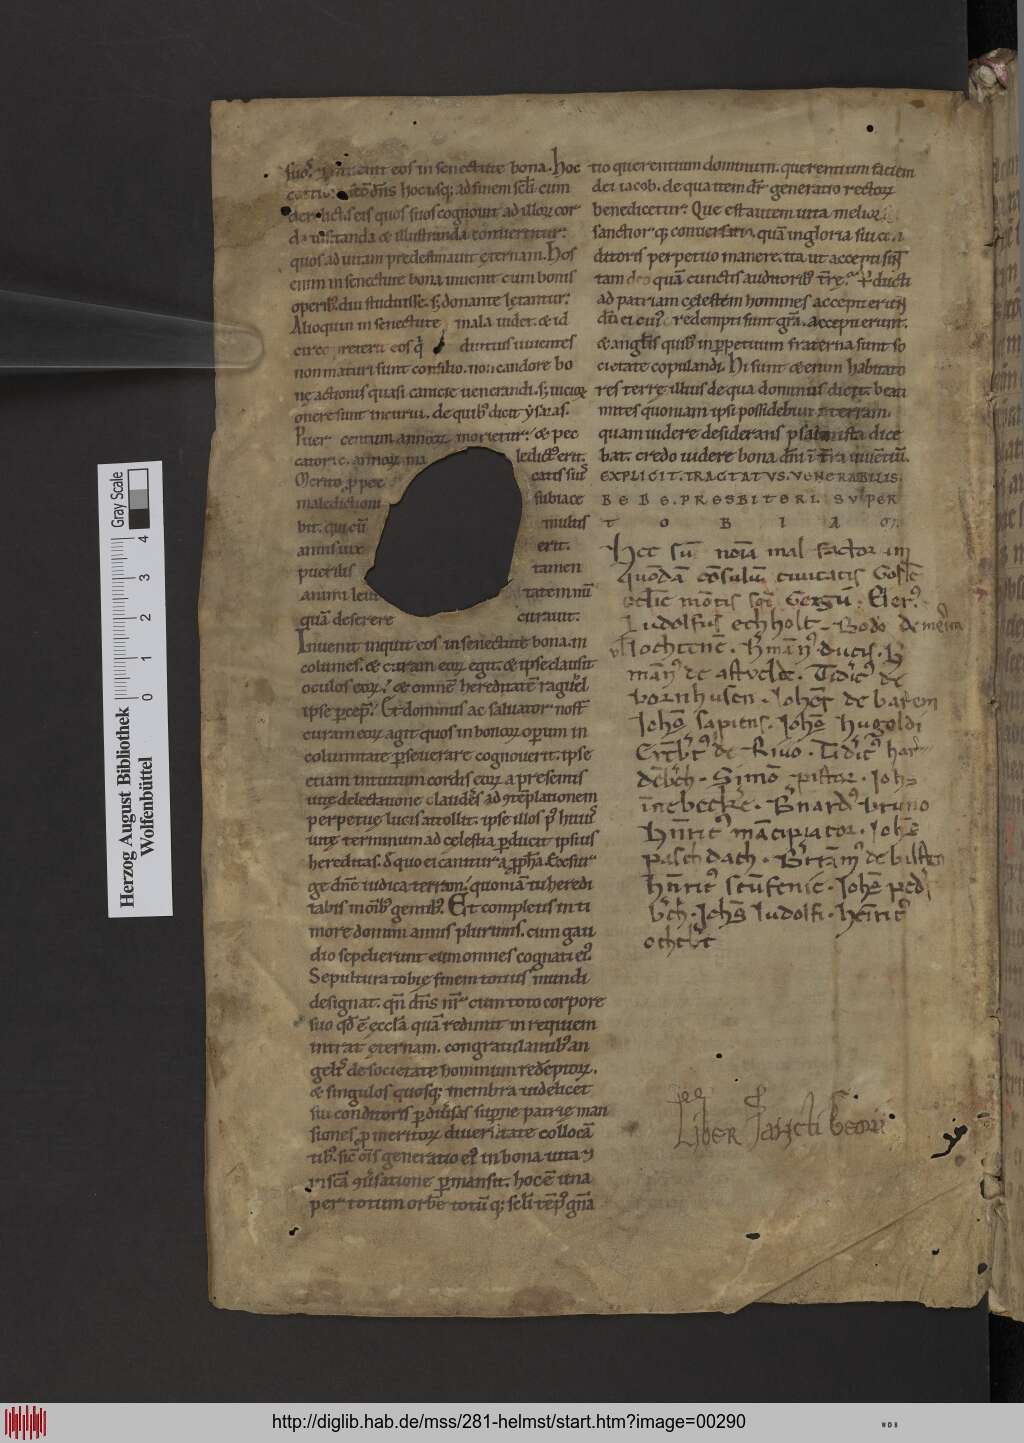 suos. inuenit eos in senectute bona. Hoc
dn̄s hoc usq; ad finem scl̄i cum
derelictis eis quos suos cognouit ad illoꝝ cor
da uisitanda & illustranda conuertitur.
quos ad uitam predestinauit ęternam. Hos
enim in senectute bona inuenit cum bonis
operib; diu studuisse. s; donante lętantur.
Alioquin in senectute mala uidet. & id
circo preterit eos q̇ diutius uiuentes
non maturi sunt consilio. non candore bo
nę actionis quasi canicie uenerandi. s; uicioꝝ
onere sunt incurui. de quib; dicit ysaias.
Puer centum annoꝝ morietur. & pec
cator c. annoꝝ ma ledict᷒ erit.
Merito ꝑpec catis suis
maledictioni subiace
bit. qui cū multis
annis uix erit.
puerilis tamen
animi leui tatem nū
quā deserere curauit.
Inuenit inquit eos in senectute bona. in
columes. & curam eoꝝ egit. & ipse clausit
oculos eoꝝ. & omnē hereditatē raguel
ipse ꝑcep̄. Et dominus ac saluator nost̄
curam eoꝝ agit quos in bonoꝝ operum in
columitate ꝑseuerare cognouerit. ipse
etiam intuitum cordis eoꝝ a presentis
uitę delectatione claudēs ad ꝯtēplationem
perpetuę lucis attollit. ipse illos p᷒ huius
uitę terminum ad celestia ꝑducit ipsius
hereditas. de quo ei cantitur a ꝓph̄a. Exsur
ge dn̄e iudica terram. quoniā tu heredi
tabis in oīb; gentib;. Et completis in ti
more domini annis plurimis. cum gau
dio sepelierunt eum omnes cognati ei᷒.
Sepultura tobię finem totius mundi
designat. qn̄ dn̄s nr̄ cum toto corpore
suo qd̄ ē ęccl̄a quā redimit in requiem
intrat ęternam. congratulantib; an
gelis de societate hominum redēptoꝝ.
& singulos quosq; membra uidelicet
sui conditoris ꝑ diuisas supnę patrię man
siones ꝓ meritoꝝ diuersitate collocā
tib;. sic̄ oīs generatio ei᷒ in bona uita &
in scā ꝯuersatione ꝑmansit. hoc ē una
per totum orbē totū q; scl̄i tēp᷒ gn̄a
tio querentium dominum. querentium faciem
dei iacob. de qua item dr̄ generatio rectoꝝ
benedicetur. Que est autem uita melior
sanctior q; conuersatio. quā in gloria sui con
ditoris perpetuo manere. ita ut accepti sīt
tam deo quā cunctis
ad patriam cęlestem homines acceperunt
dū ei cui᷒ redempti sunt gr̄a. acceperunt.
& angl̄is quib; in ꝑpetuum fraterna sunt so
cietate copulandi. Hi sunt & enim habitato
res terrę illius de qua dominus dicit. beati
mites quoniam ipsi possidebunt terram.
quam uidere desiderans psalmista dice
bat. credo uidere bona dn̄i ī tr̄a uiuētiū.
EXPLICIT. TRACTATVS. VENERABILIS.
BEDE. PRESBITERI. SVPER
TOBIAM
Hec sūt noīa mal factor um
quōdā cōsulū ciuitatis Gosl̄
eccl̄ie mōtis sc̄i Georgii. Eler᷒.
Ludolfus echholt. Bodo de
Jochteme. h᷒mān᷒ ducis. h᷒
mān᷒ de astuelde. Tidic᷒ de
bornhusen. Johēs de barem
Johēs sapiens. Johēs hugoldi
de Riuo. Tidic᷒ har
debech. Simō pistor. Joh̄s
inebecke. B᷒nard᷒ bruno
hinric᷒ mācipiator. Joh̄s
paschdach. B᷒tram᷒ de bilsten
hinric᷒ scūfenic. Joh̄s
bech. Joh̄s ludolfi. henric᷒
ochtb᷒t
Liber Sancti Georii
Herzog August Bibliothek
Wolfenbüttel
Gray Scale
0 1 2 3 4
http://diglib.hab.de/mss/281-helmst/start.htm?image=00290
WDB